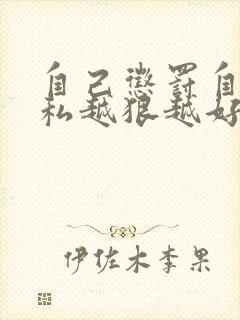 自己惩罚自
私越狠越好
伊佐木李果